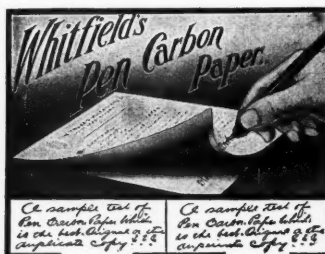 Whitfield's
Pen Carbon
Paper.
A sample test of
Pen Carbon Paper which
is the best. Original or the
duplicate copy
A sample test of
Pen Carbon Paper which
is the best. Original or the
duplicate copy